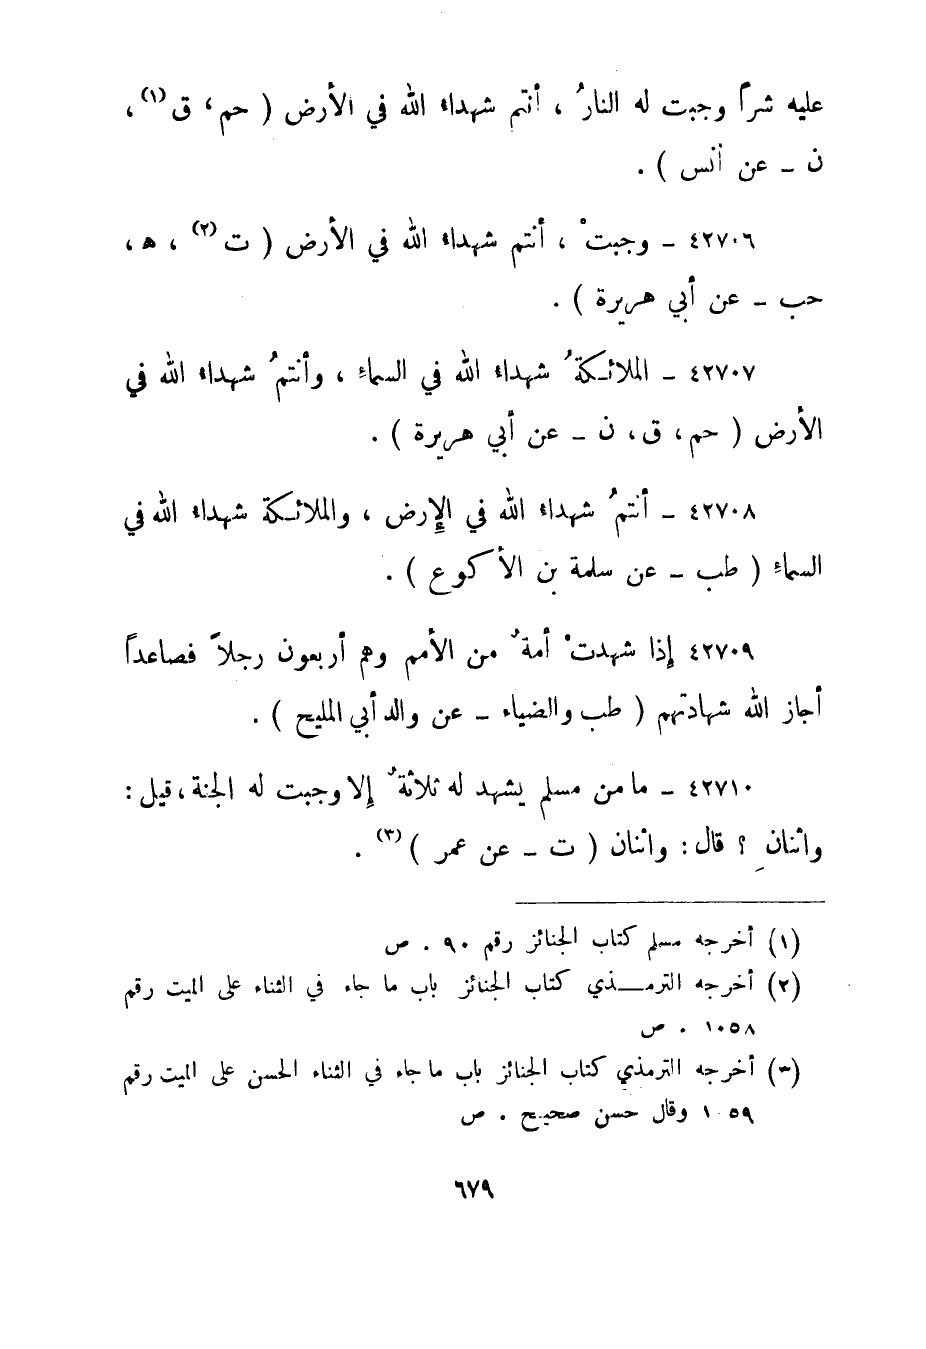 عليه شراً وجبت له النارُ ، أنتم شهداء الله في الأرض ( حم ، ق (١) ،
ن ـ عن أنس ) .
٤٢٧٠٦ ـ وجبتْ ، أنتم شهداء الله في الأرض ( ت (٢) ، ه ،
حب ـ عن أبي هريرة ) .
٤٢٧٠٧ ـ الملائكةُ شهداء الله في السماءِ ، وأنتمُ شهداء الله في
الأرض ( حم ، ق ، ن ـ عن أبي هريرة ) .
٤٢٧٠٨ ـ أنتمُ شهداء الله في الإرض ، والملائكة شهداء الله في
السماءِ ( طب ـ عن سلمة بن الأكوع ) .
٤٢٧٠٩ إذا شهدتْ أمةٌ من الأمم وهم أربعون رجلاً فصاعداً
أجاز الله شهادتهم ( طب والضياء ـ عن والد أبي المليح ) .
٤٢٧١٠ ـ ما من مسلم يشهد له ثلاثةٌ إلا وجبت له الجنة ، قيل :
واثنانِ ؟ قال : واثنان ( ت ـ عن عمر ) (٣) .
(١) أخرجه مسلم كتاب الجنائز رقم ٩٠ . ص
(٢) أخرجه الترمـــذي كتاب الجنائز باب ما جاء في الثناء على الميت رقم
١٠٥٨ . ص
(٣) أخرجه الترمذي كتاب الجنائز باب ما جاء في الثناء الحسن على الميت رقم
١٠٥٩ وقال حسن صحيح . ص
٦٧٩